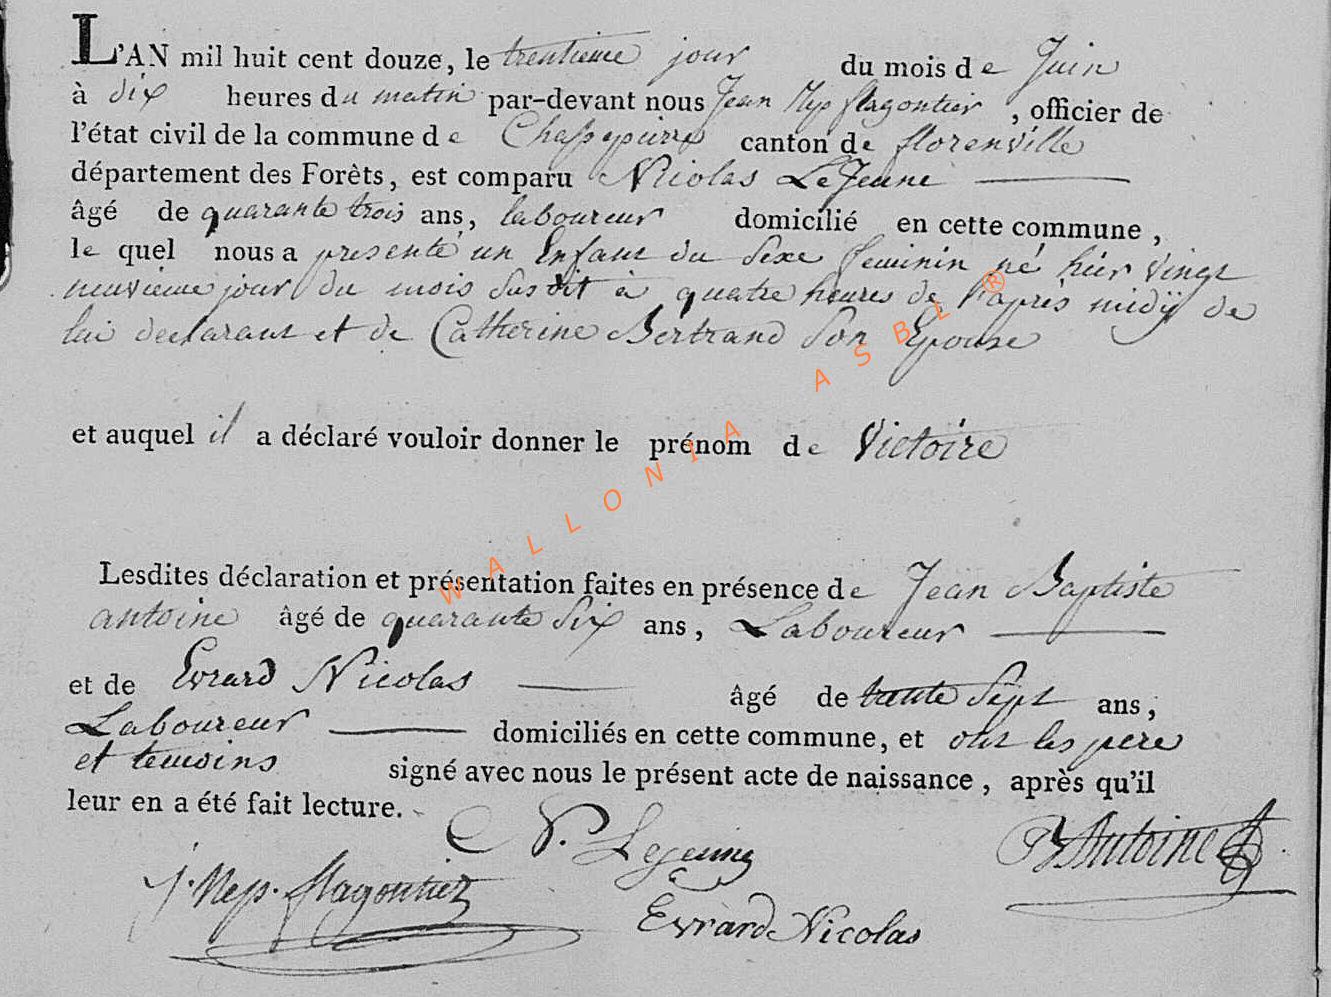 L'AN mil huit cent douze, le trentieme jour du mois de Juin
à dix heures du matin par-devant nous Jean Nep flagontier, officier de
l'état civil de la commune de Chassepierre canton de florenville
département des Forêts, est comparu Nicolas LeJeune
âgé de quarante trois ans, laboureur domicilié en cette commune,
le quel nous a presenté un Enfant du Sexe feminin né hier vingt
neuvieme jour du mois susdit à quatre heures de l'après midÿ de
lui declarant et de Catherine Bertrand Son Epouse
et auquel il a déclaré vouloir donner le prénom de Victoire
Lesdites déclaration et présentation faites en présence de Jean Baptiste
antoine âgé de quarante Six ans, Laboureur
et de Evrard Nicolas âgé de trente Sept ans,
Laboureur domiciliés en cette commune, et ont les pere
et temoins signé avec nous le présent acte de naissance, après qu'il
leur en a été fait lecture.
N. Lejeune
Antoine
J. Nep. flagontier
Evrard Nicolas
WALLONIA ASBL ®